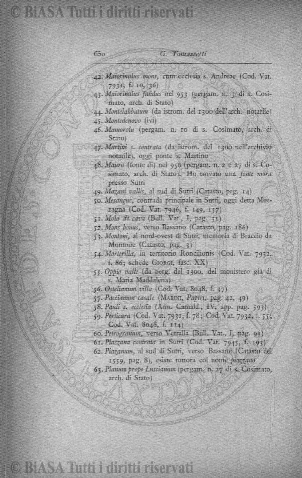 © BiASA Tutti i diritti riservati
650 G. Tomassetti
42. Maiorinius mons, cum ecclesia s. Andreae (Cod. Vat.
7931, f. 10, 36)
43. Maiorinius fundus nel 953 (pergam. n. 3 di s. Cosi-
mato, arch. di Stato)
44. Montelabbatum (da istrom. del 1300 dell'arch. notarile)
45. Montedonevo (ivi)
46. (pergam. n. 10 di s. Cosimato, arch. di
Stato)
47. Martini s. contrata (da istrom. del 1360 nell'archivio
notarile), oggi ponte s. Martino
48. Maura (fonte di) nel 956 (pergam. n. 2 e 27 di s. Co-
simato, arch. di Stato). Ho trovato una
presso Sutri
49. Mazani vallis, al sud di Sutri (Catasto, pag. 14)
50. contrada principale in Sutri, oggi detta
(Cod. Vat. 7946, f. 149, 157)
51. Mola di carta (Bull. Vat., I, pag. 15)
52. Mons Iovis, verso Bassano (Catasto, pag. 186)
53. al nord-ovest di Sutri, memoria di Braccio da
Montone (Catasto, pag. 5)
54. in territorio Ronciglionis (Cod. Vat. 7932,
f. 86; schede fasc. XX)
55. Oppii valli (da perg. del 1300, del monistero già di
s. Maria Maddalena)
56. villa (Cod. Vat. 8038, f. 47)
57. casale (Marini, Papiri, pag. 42, 49)
58. Pauli s. ecclesia (Ann. Camald., IV, app. pag. 595)
59. (Cod. Vat. 7931, f. 78; Cod. Vat. 7932, f. 55;
Cod. Vat. 8046, f. 114)
60. verso Vetralla (Bull. Vat., I, pag. 95)
61. Plazzana contrata in Sutri (Cod. Vat. 7945, f. 195)
62. Plazanum, al sud di Sutri, verso Bassano (Catasto del
1559, pag. 8), esiste tuttora col nome
63. Planum prope Luzianum (pergam. n. 27 di s. Cosimato,
arch. di Stato)
© BiASA Tutti i diritti riservati